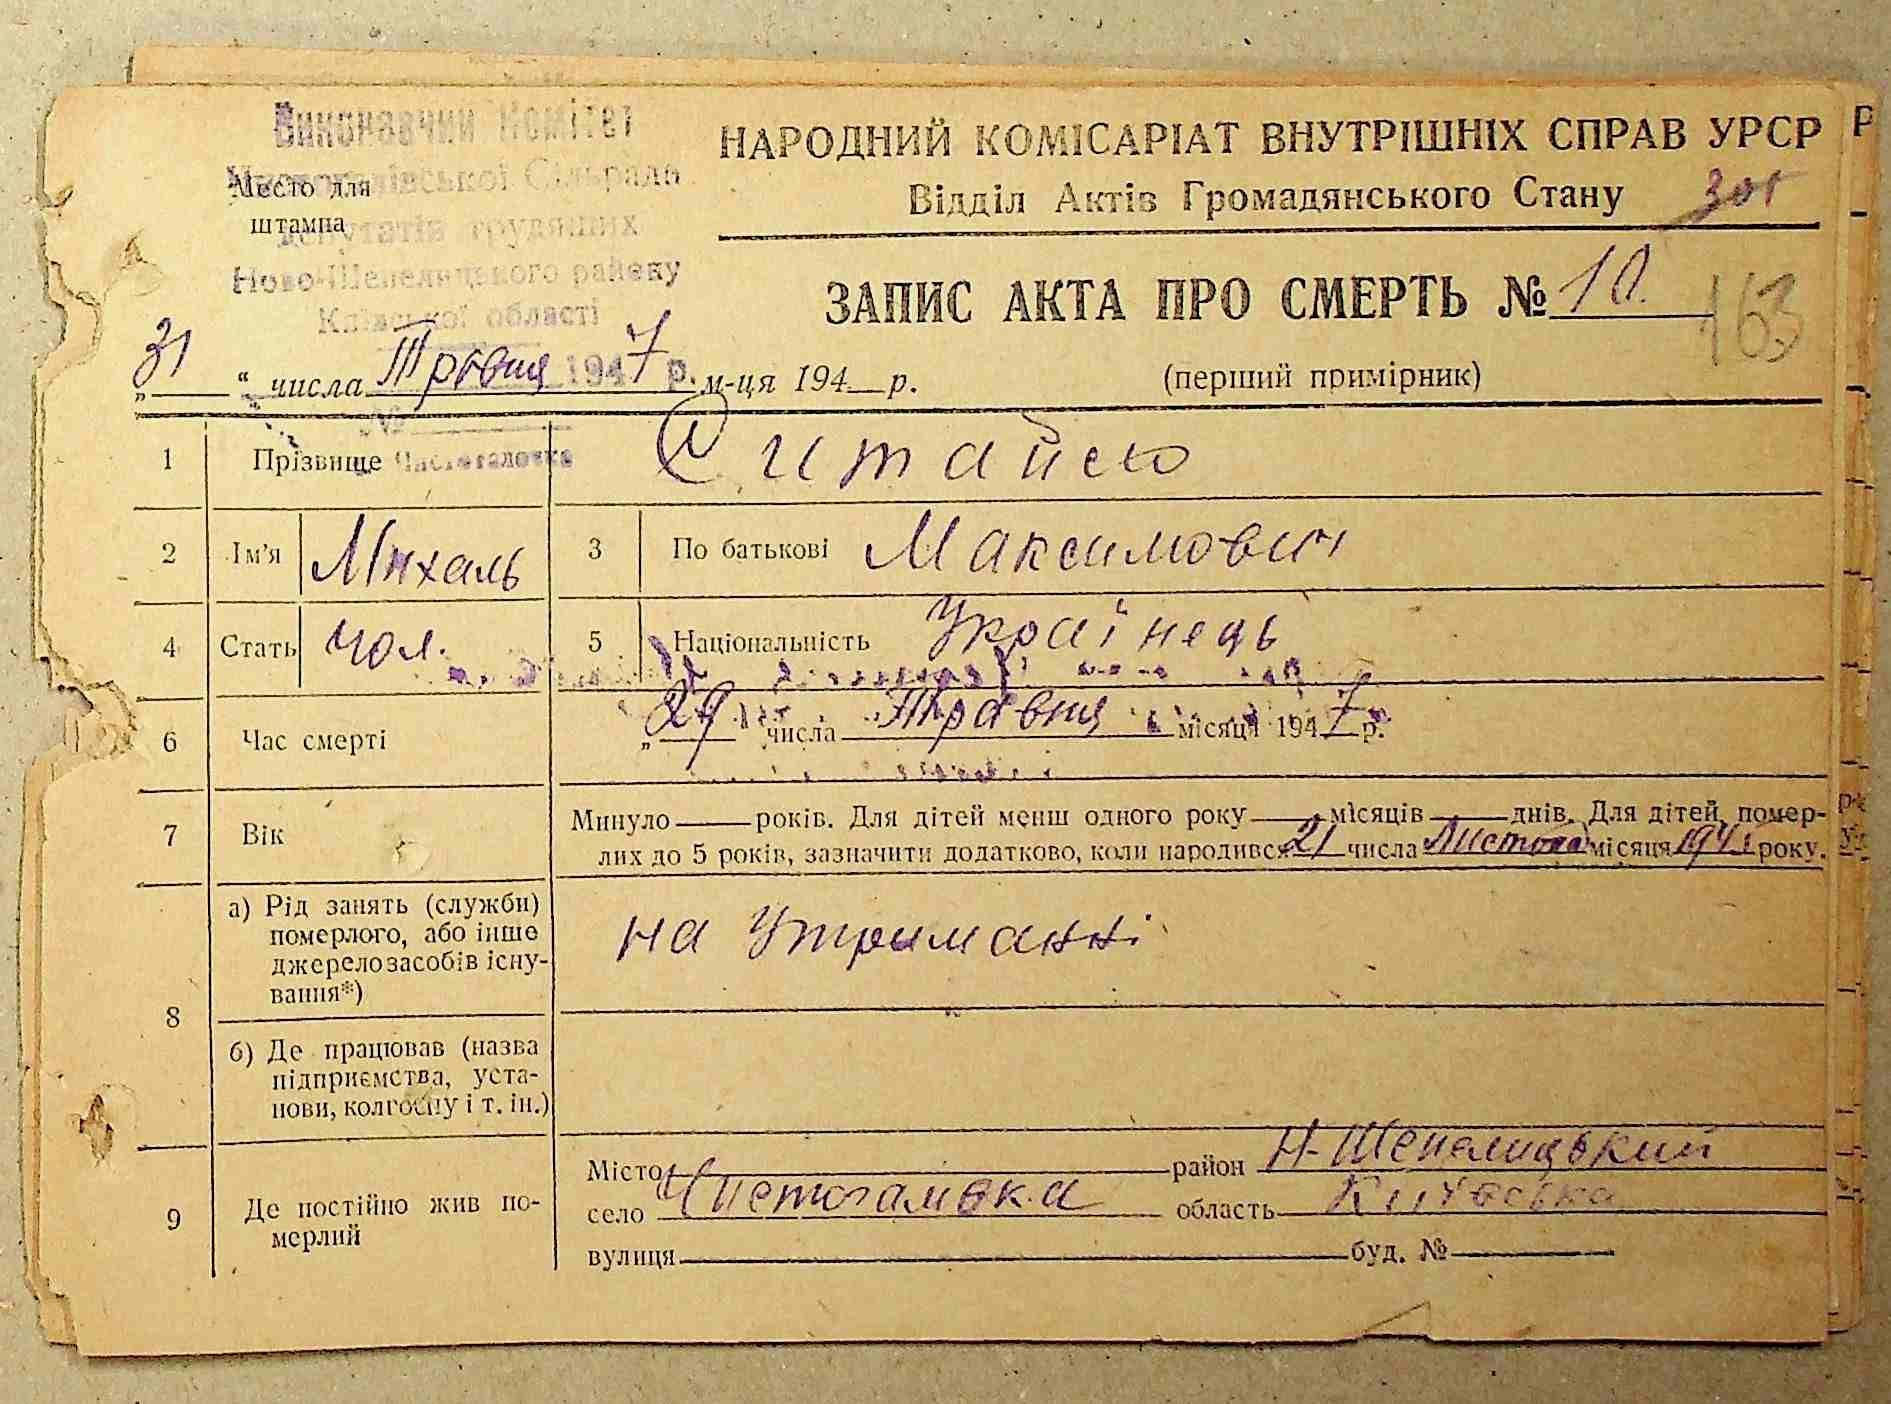 Виконавчий Комітет
Місто для
штампа
депутатів трудящих
Ново-Шепелицького району
Київської області
НАРОДНИЙ КОМІСАРІАТ ВНУТРІШНІХ СПРАВ УРСР
Відділ Актів Громадянського Стану
ЗАПИС АКТА ПРО СМЕРТЬ № 10
163
„31“ числа Травня 1947 р. м-ця 194 р.
(перший примірник)
№
1 Прізвище Чистогаловка Ситайло
2 Ім’я Михаль 3 По батькові Максимович
4 Стать чол. 5 Національність Українець
6 Час смерті „29“ числа Травня місяця 1947 р.
7 Вік Минуло років. Для дітей менш одного року місяців днів. Для дітей, помер-
лих до 5 років, зазначити додатково, коли народився 21 числа Листопада місяця року.
8 а) Рід занять (служби)
померлого, або інше
джерело засобів існу-
вання*)
на утриманні
б) Де працював (назва
підприємства, уста-
нови, колгоспу і т. ін.)
9 Де постійно жив по-
мерлий
Місто район Н-Шепелицький
село Чистогаловка область Київська
вулиця буд. №